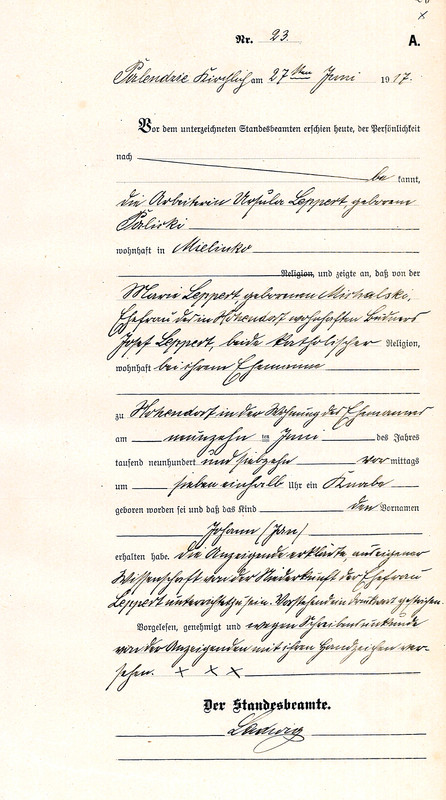 Nr. 23.
A.
am 27ten Juni 1917.
Vor dem unterzeichneten Standesbeamten erschien heute, der Persönlichkeit
nach
be kannt,
die Arbeiterin Ursula Leppert, geborene
wohnhaft in Mielinko
Religion, und zeigte an, daß von der
Marie Leppert, geborenen Michalski,
Ehefrau des in Hohendorf wohnhaften
Josef Leppert, beide katholischer Religion,
wohnhaft bei ihrem Ehemann
zu Hohendorf in der Wohnung des Ehemannes
am neunzehn ten Juni des Jahres
tausend neunhundert und siebzehn vor mittags
um sieben einhalb Uhr ein Knabe
geboren worden sei und daß das Kind den Vornamen
Johann (Jan)
erhalten habe. Die Anzeigende erklärte, aus eigener
Wissenschaft von der Niederkunft der Ehefrau
Leppert unterrichtet zu sein. Vorstehend ein Druckwort gestrichen.
Vorgelesen, genehmigt und wegen Schreibensunkunde
von der Anzeigenden mit ihren Handzeichen ver-
sehen. + + +
Der Standesbeamte.
Ludwig